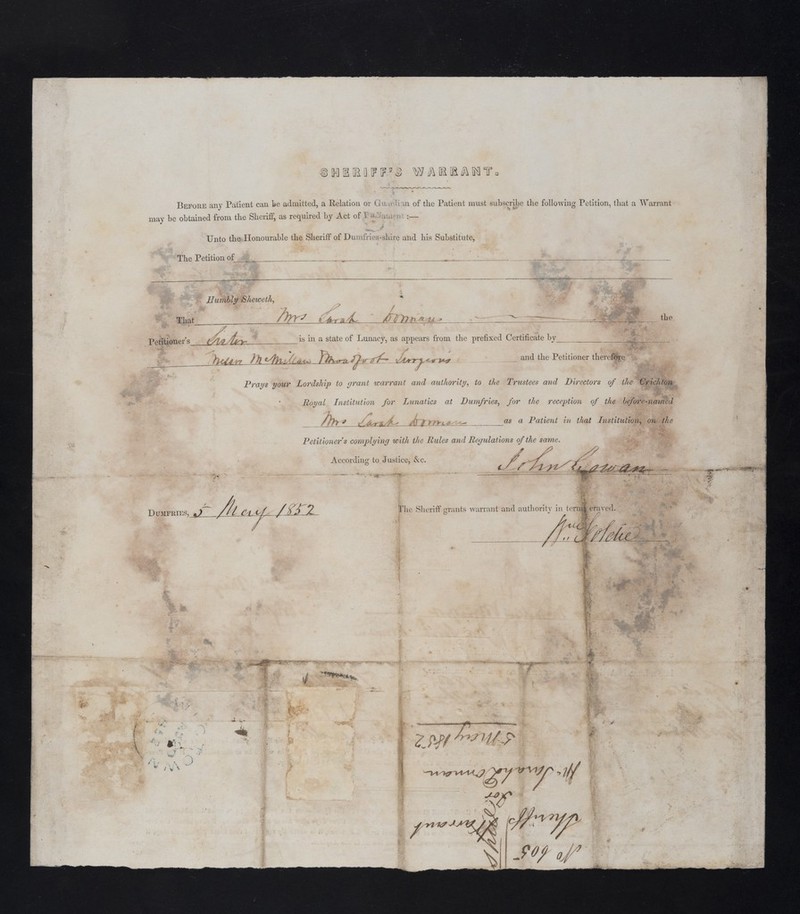 SHERIFF'S WARRANT.
BEFORE any Patient can be admitted, a Relation or Guardian of the Patient must subscribe the following Petition, that a Warrant
may be obtained from the Sheriff, as required by Act of Parliament :—
Unto the Honourable the Sheriff of Dumfries-shire and his Substitute,
The Petition of
Humbly Sheweth,
That Mrs Sarah the
Petitioner's Sister is in a state of Lunacy, as appears from the prefixed Certificate by
McMillan Surgeons and the Petitioner therefore
Prays your Lordship to grant warrant and authority, to the Trustees and Directors of the Crichton
Royal Institution for Lunatics at Dumfries, for the reception of the before-named
Mrs Sarah as a Patient in that Institution, on the
Petitioner's complying with the Rules and Regulations of the same.
According to Justice, &c.
John Cowan
DUMFRIES, 5 May 1852
The Sheriff grants warrant and authority in terms craved.
Goldie
No 605
Sheriff's Warrant
For
Mrs Sarah
5 May 1852